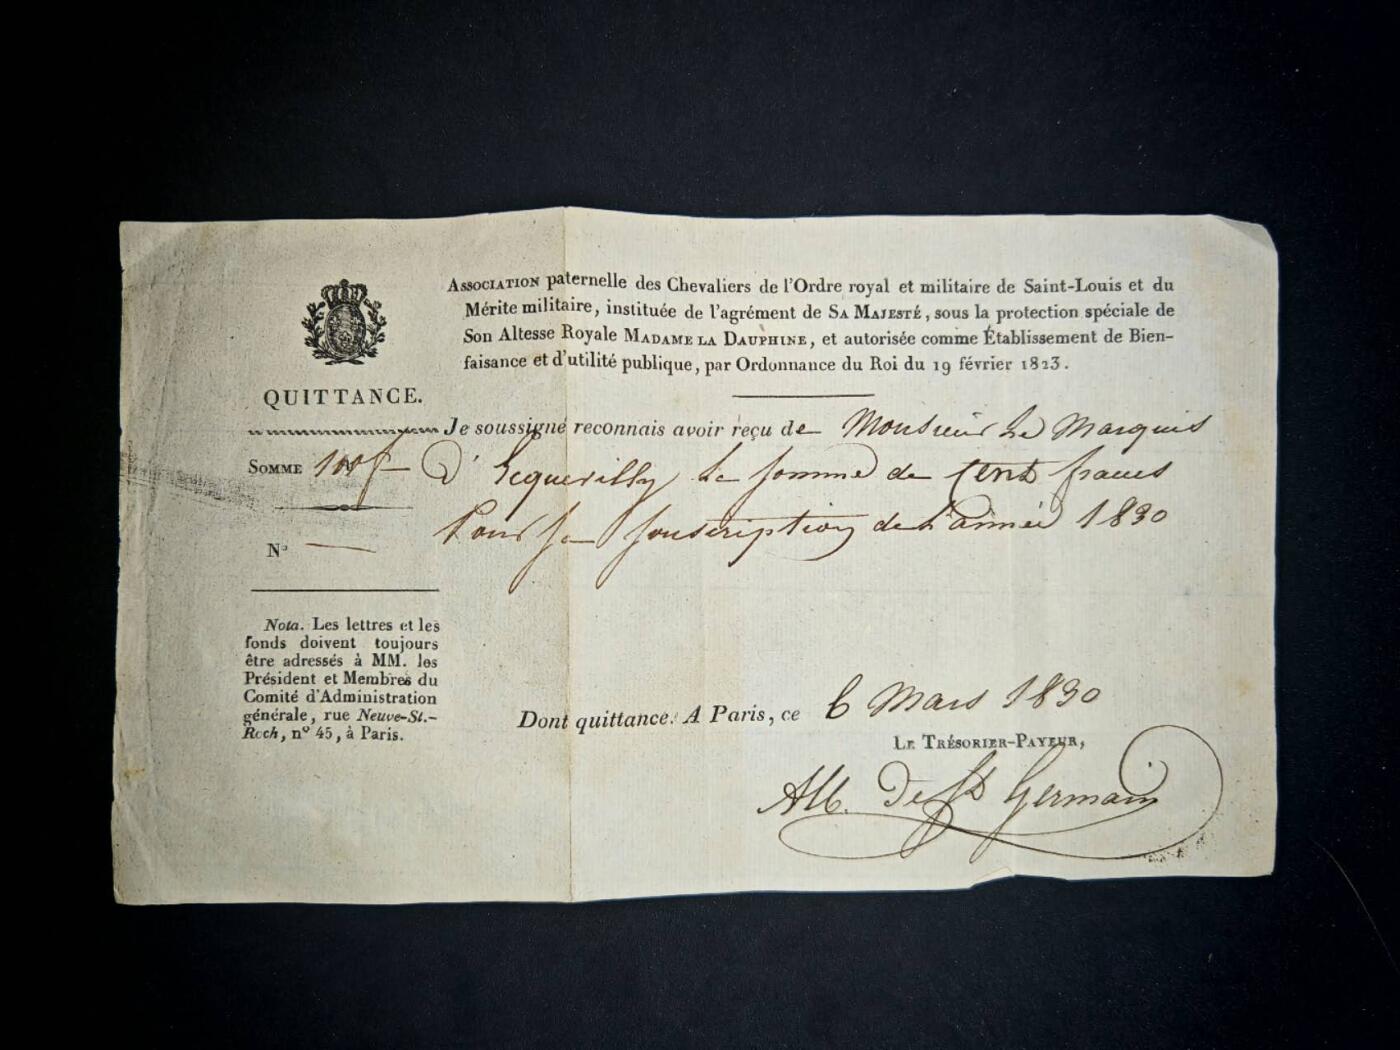 Association paternelle des Chevaliers de l'Ordre royal et militaire de Saint-Louis et du
Mérite militaire, instituée de l'agrément de Sa Majesté, sous la protection spéciale de
Son Altesse Royale Madame la Dauphine, et autorisée comme Établissement de Bien-
faisance et d'utilité publique, par Ordonnance du Roi du 19 février 1823.
QUITTANCE.
Je soussigné reconnais avoir reçu de Monsieur Le Marquis
Somme 100f
D'Ecquevilly La somme de Cent francs
Pour sa souscription de L'année 1830
N°
Nota. Les lettres et les
fonds doivent toujours
être adressés à MM. les
Président et Membres du
Comité d'Administration
générale, rue Neuve-St.-
Roch, n° 45, à Paris.
Dont quittance. A Paris, ce 6 Mars 1830
Le Trésorier-Payeur,
Alb. De St Germain